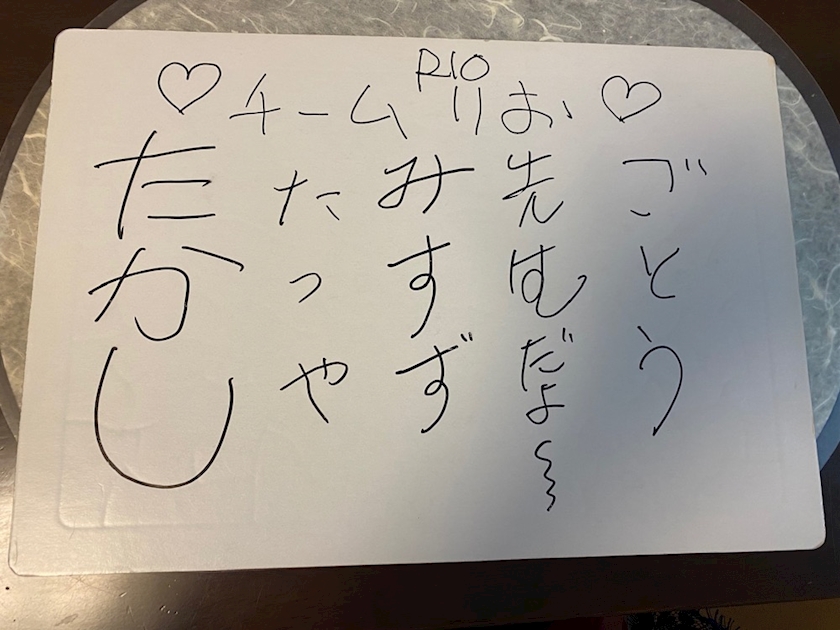 RIO
♡チームりお♡
ごとう
先 だよ〜
みすず
たっや
たかし